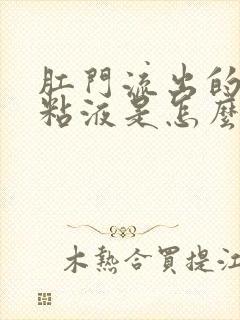 肛門流出的
粘液是怎麼
木熱合買提江